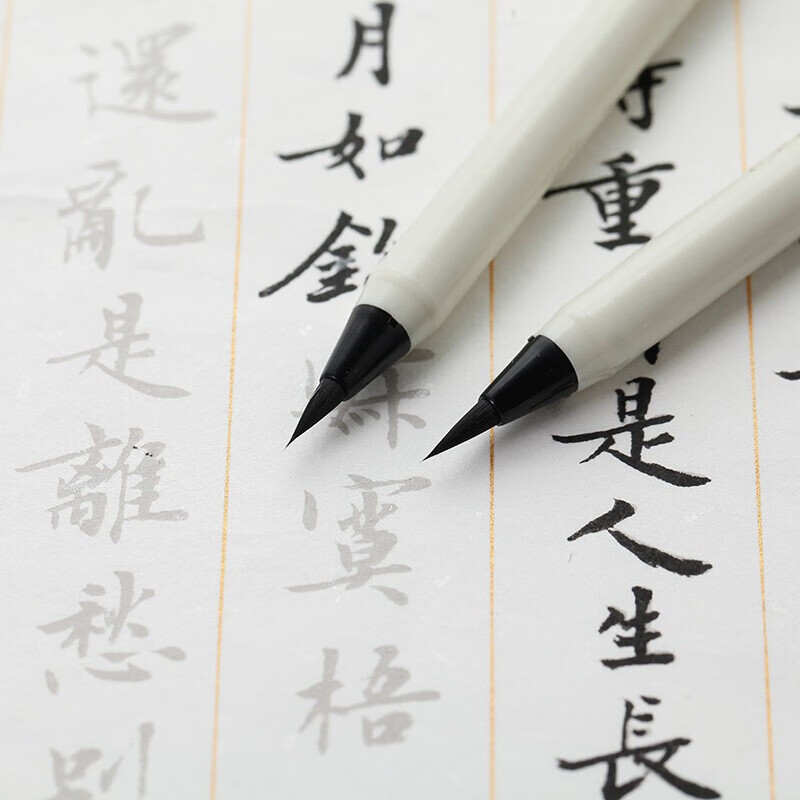 時重是人生長
月如鉤寞梧
還亂是離愁別